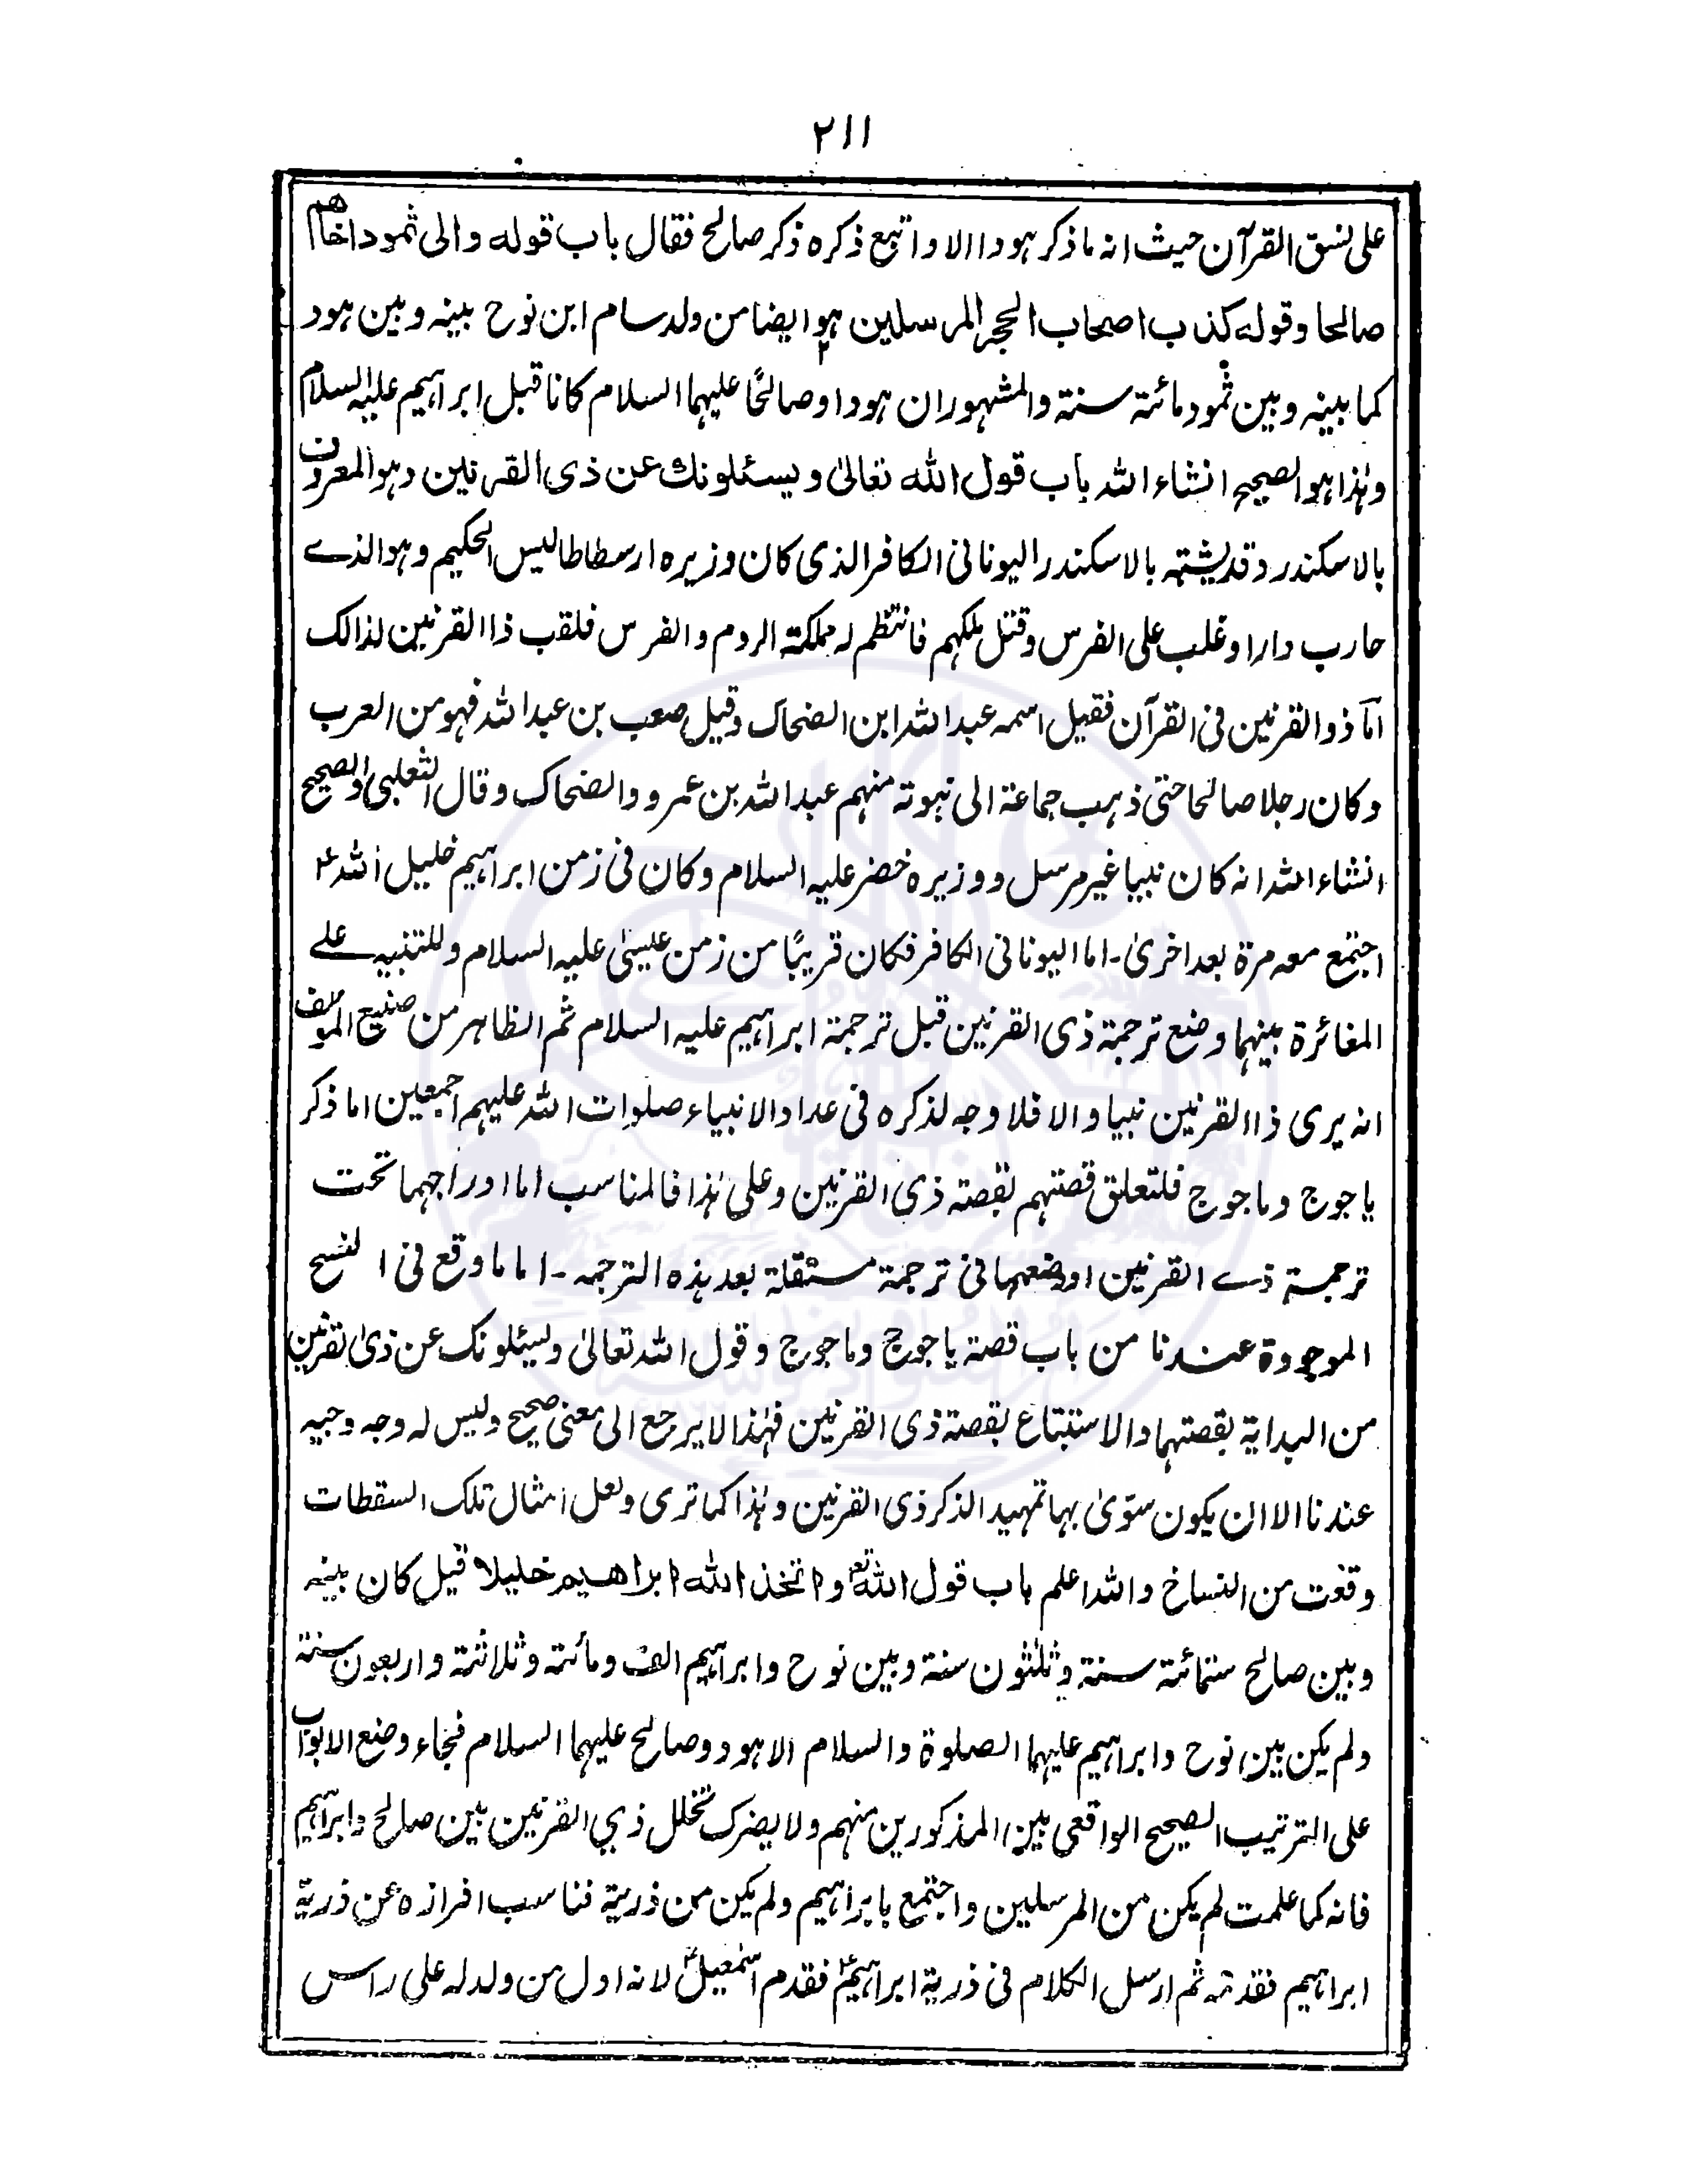 ۲۱۱
على نسق القرآن حيث انه ما ذكر هودا الا واتبع ذكره ذكر صالح فقال باب قوله والى ثمود اخاهم
صالحا وقوله كذب اصحاب الحجر المرسلين هو ايضا من ولد سام ابن نوح بينه وبين هود
كما بينه وبين ثمود مائة سنة والمشهور ان هودا وصالحًا عليهما السلام كانا قبل ابراهيم عليه السلام
وهٰذا هو الصحيح انشاء الله باب قول الله تعالىٰ ويسئلونك عن ذى القرنين وهو المعروف
بالاسكندر وقد يشتبه بالاسكندر اليونانى الكافر الذى كان وزيره ارسطاطاليس الحكيم وهو الذے
حارب دارا وغلب على الفرس وقتل ملكهم فانتظم له مملكة الروم والفرس فلقب ذا القرنين لذالك
امّا ذو القرنين فى القرآن فقيل اسمه عبد الله ابن الضحاك وقيل صعب بن عبد الله فهو من العرب
وكان رجلا صالحا حتى ذهب جماعة الى نبوته منهم عبد الله بن عمرو والضحاك وقال الثعلبى والصحيح
انشاء الله انه كان نبيا غير مرسل ووزيره خضر عليه السلام وكان فى زمن ابراهيم خليل الله ؑ
اجتمع معه مرة بعد اخرىٰ ۔ اما اليونانى الكافر فكان قريبًا من زمن عيسىٰ عليه السلام وللتنبيه علے
المغائرة بينهما وضع ترجمة ذى القرنين قبل ترجمة ابراهيم عليه السلام ثم الظاهر من صنيع المؤلف
انه يرى ذا القرنين نبيا والا فلا وجه لذكره فى عداد الانبياء صلوات الله عليهم اجمعين اما ذكر
ياجوج وماجوج فلتعلق قصتهم بقصة ذى القرنين وعلى هٰذا فالمناسب اما ادراجهما تحت
ترجمة ذے القرنين او وضعهما فى ترجمة مستقلة بعد هذه الترجمة ۔ اما ما وقع فى النسخ
الموجودة عندنا من باب قصة ياجوج وماجوج وقول الله تعالىٰ ويسئلونك عن ذى القرنين
من البداية بقصتهما والاستتباع بقصة ذى القرنين فهٰذا لا يرجع الى معنى صحيح وليس له وجه وجيه
عندنا الا ان يكون سوّىٰ بها تمهيدا لذكر ذى القرنين وهٰذا كما ترى ولعل امثال تلك السقطات
وقعت من النساخ والله اعلم باب قول الله تع واتخذ الله ابراهيم خليلا قيل كان بينه
وبين صالح ستمائة سنة وثلثون سنة وبين نوح وابراهيم الف ومائة وثلاثة واربعون سنة
ولم يكن بين نوح وابراهيم عليهما الصلوة والسلام الا هود وصالح عليهما السلام فجاء وضع الابواب
على الترتيب الصحيح الواقعى بين المذكورين منهم ولا يضرك تخلل ذي القرنين بين صالح وابراهيم
فانه كما علمت لم يكن من المرسلين واجتمع بابراهيم ولم يكن من ذرية فناسب افرازه عن ذرية
ابراهيم فقدمه ثم ارسل الكلام فى ذرية ابراهيم ؑ فقدم اسمٰعيل ؑ لانه اول من ولد له على راس